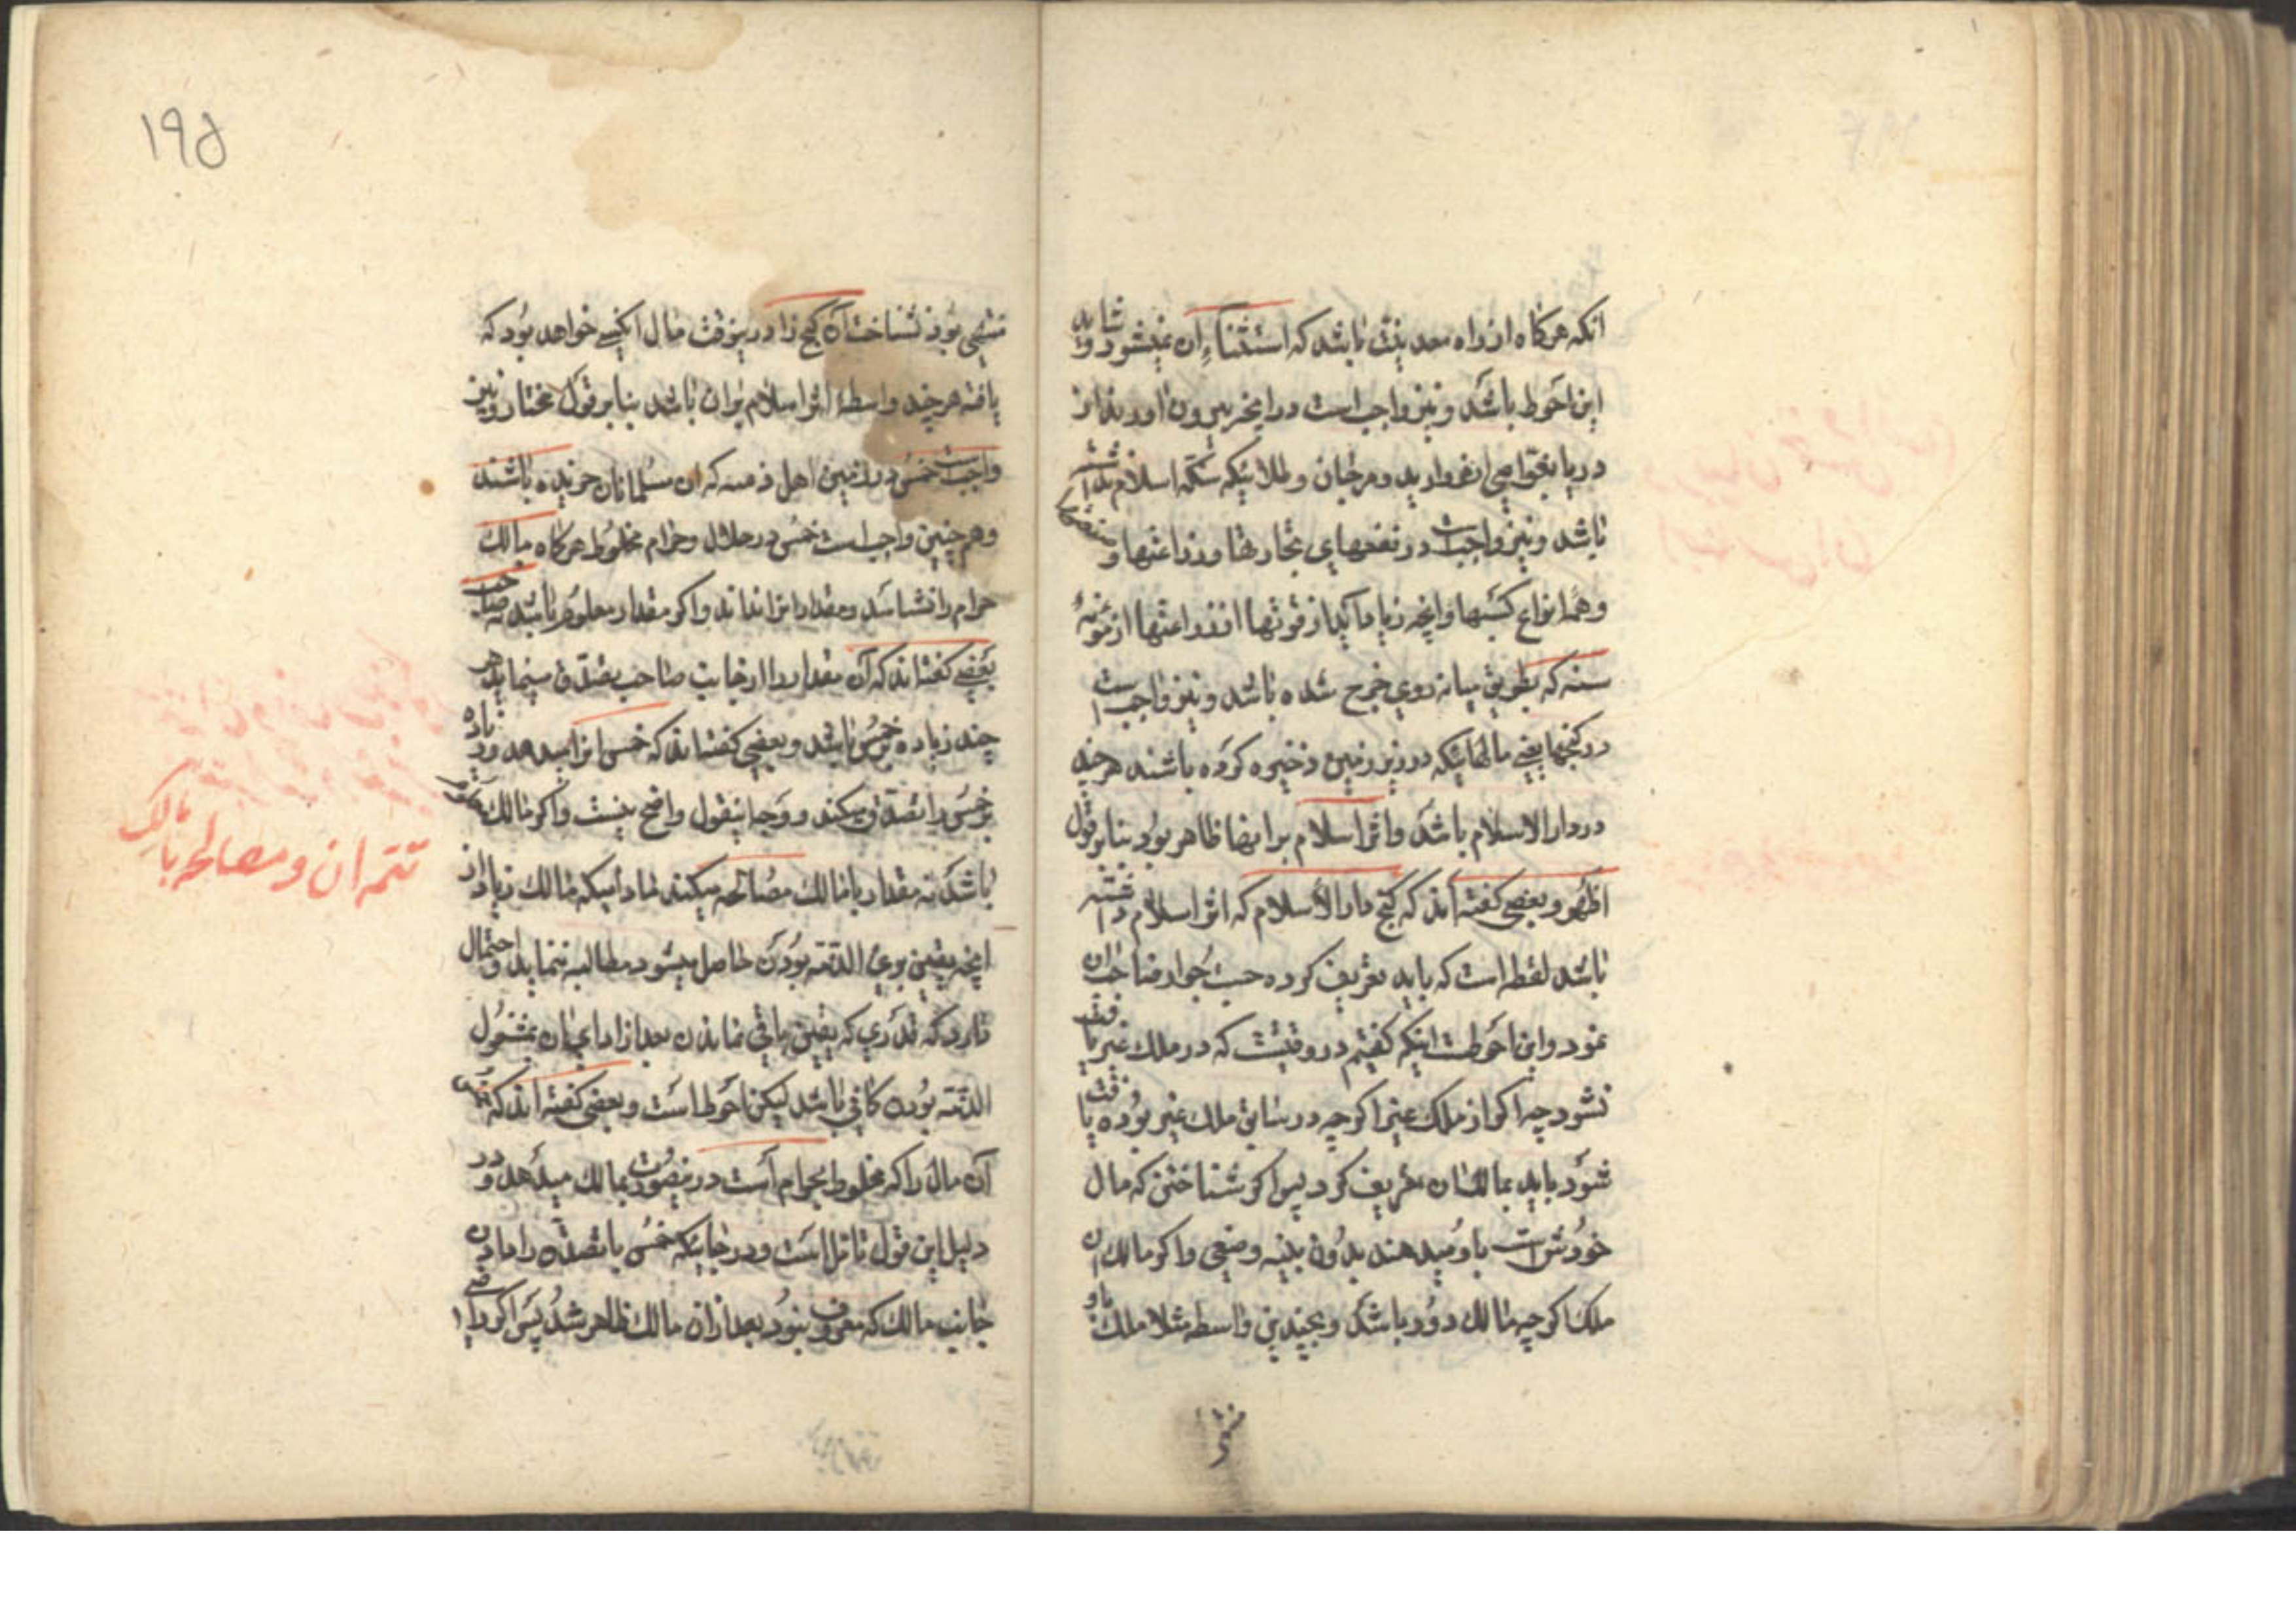 انکه هرکاه از راه معدنیت باشد که استثناء ان نمیشود و شاید
این احوط باشد و نیز واجب است در انچه بیرون اورند از
دریا بغواصی از مروارید و مرجان و طلائیکه سکه اسلام نداشته
باشد و نیز واجبست در نفعهای تجارتها و زراعتها و صنعتها
و همه انواع کسبها و انچه زیاد آید از قوتها از زراعتها از مؤنه
سنه که بطریق میانه روی خرج شده باشد و نیز واجب است
در کنجها یعنی مالهائیکه در زیر زمین ذخیره کرده باشند هر چند
در دار الاسلام باشد و اثر اسلام بر انها ظاهر بود بنابر قول
اظهر و بعضی کفته اند که کنج دار الاسلام که اثر اسلام داشته
باشد لقطه است که باید تعریف کرده حسب جواز صاحب ان
نمود و این احوطست اینکه کفتیم در وقتیست که در ملک غیر یافت
نشود چه اکر از ملک غیر اکرچه در سابق ملک غیر بوده یافت
شود باید بمالک ان تعریف کرد پس اکر شناختن که مال
خودش است باو میدهند بدون بینه و صفی و اکر مالک ان
ملک اکرچه مالک دور باشد و بچندین واسطه مثلا ملک باو
۱۹۵
منتهی بود نشناخت آن کنج را درینوقت مال انکسی خواهد بود که
یافته هر چند واسطهٔ اثر اسلام بران باشد بنابر قول مختار و نیز
واجبست خمس در زمین اهل ذمه که از مسلمانان خریده باشند
و هم چنین واجب است خمس در حلال و حرام مخلوط هرکاه مالک
حرام را نشناسد و مقدار انرا نداند و اکر مقدار معلوم باشد نه صاحب
بعضی کفته اند که آن مقدار را از جانب صاحب تصدق مینماید هر
چند زیاده بر خمس باشد و بعضی کفته اند که خمس انرا میدهد و زیاده
بر خمس را تصدق میکند و وجه اینقول واضح نیست و اکر مالک معلوم
باشد نه مقدار با مالک مصالحه میکند مادامیکه مالک زیاد از
انچه یقین بری الذمه بودن حاصل میشود مطالبه ننماید و احتمال
دارد که قدری که یقین باقی نماندن بعد از ادای ان بمشغول
الذمه بودن کافی باشد لیکن احوط است و بعضی کفته اند که خمس
آن مال را که مخلوط بحرام است درینصورت بمالک میدهد و در
دلیل این قول تامل است و در جائیکه خمس یا تصدق را داد از
جانب مالک که معروف نبود بعد از ان مالک ظاهر شد پس اکر راضی
تتمه ان و مصالحه با مالک